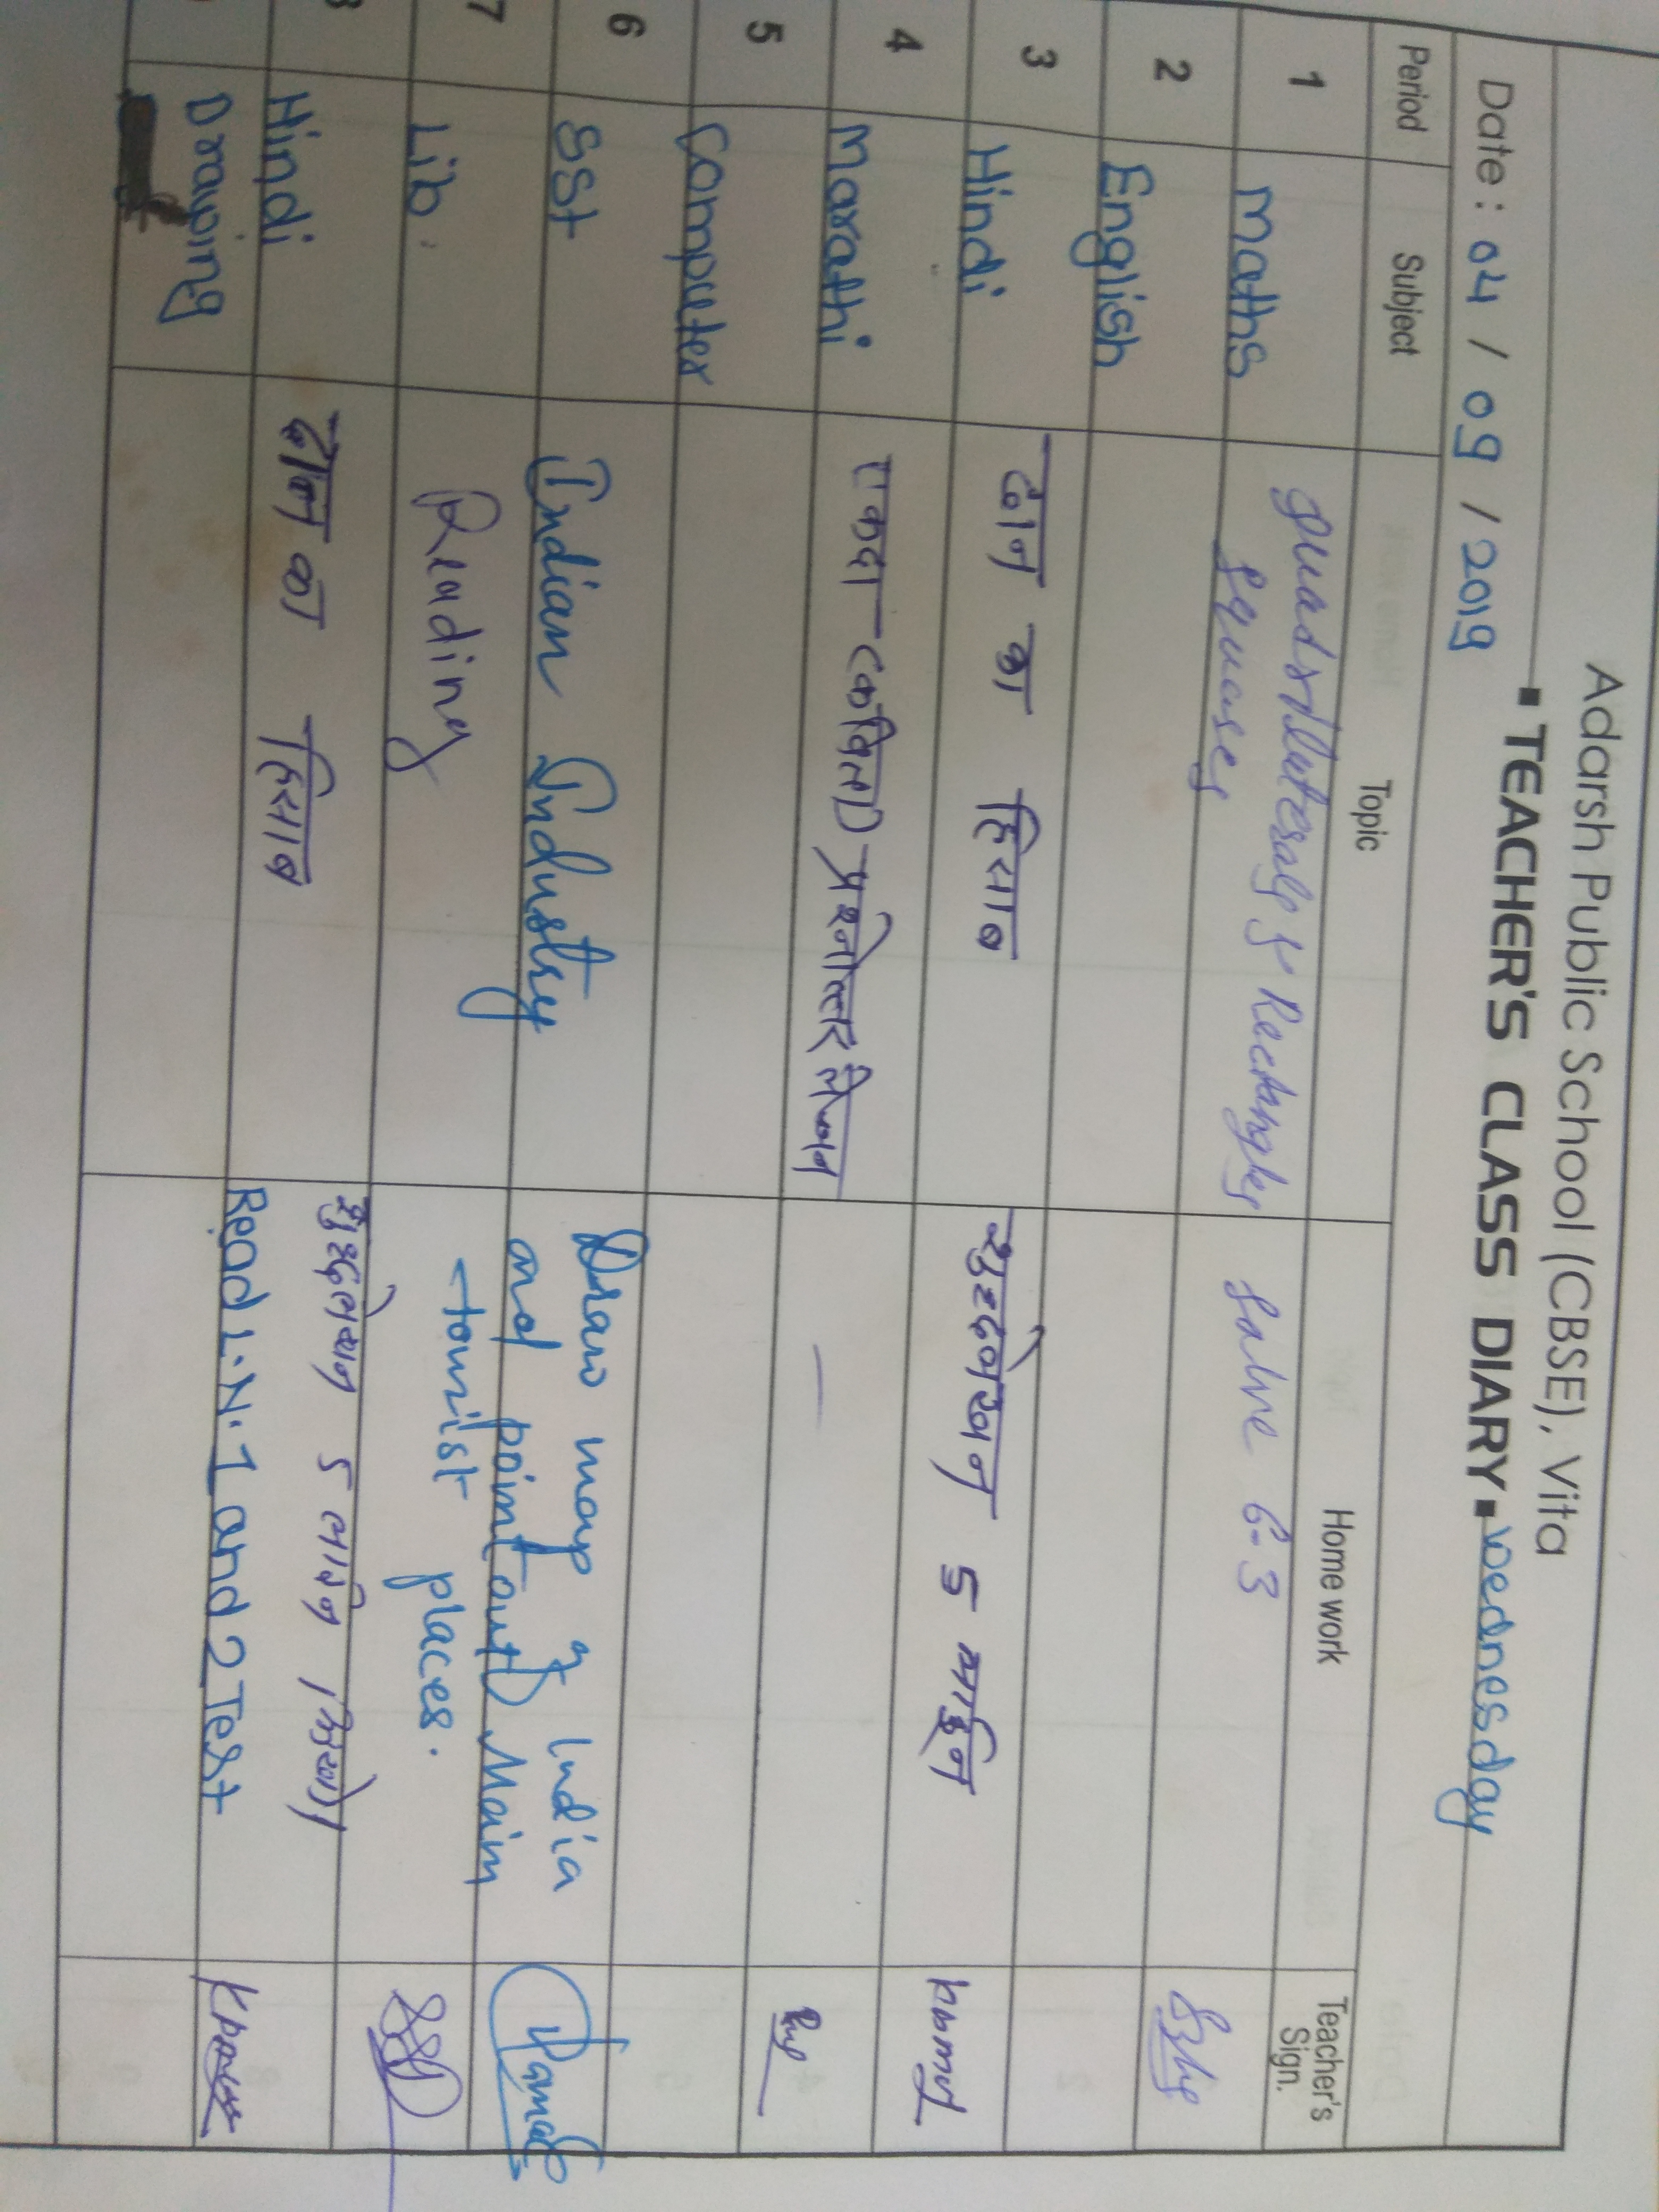 Adarsh Public School (CBSE), Vita
▪ TEACHER'S CLASS DIARY ▪ wednesday
Date : 04 / 09 / 2019
Period Subject Topic Home work Teacher's Sign.
1 Maths Rectangles Solve 6.3
2 English
3 Hindi दान का हिसाब शुद्धलेखन 5 लाईन
4 Marathi एकदा कविता प्रश्नोत्तर लेखन —
5 Computer
6 SST Indian Industry Draw map of India
and point out Main
tourist places.
7 Lib. Reading
Hindi दान का हिसाब शुद्धलेखन 5 लाईन लिखो।
Drawing Read L.N. 1 and 2 Test